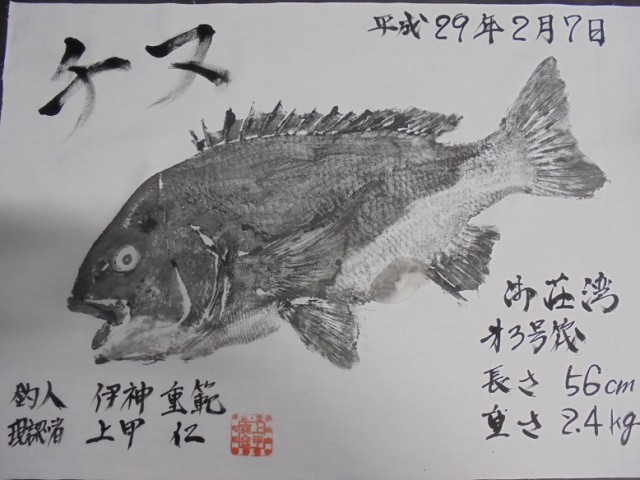 平成29年2月7日
ケヌ
御荘湾
オ3号筏
長さ 56cm
重さ 2.4kg
釣人 伊神 重範
現認者 上甲 仁